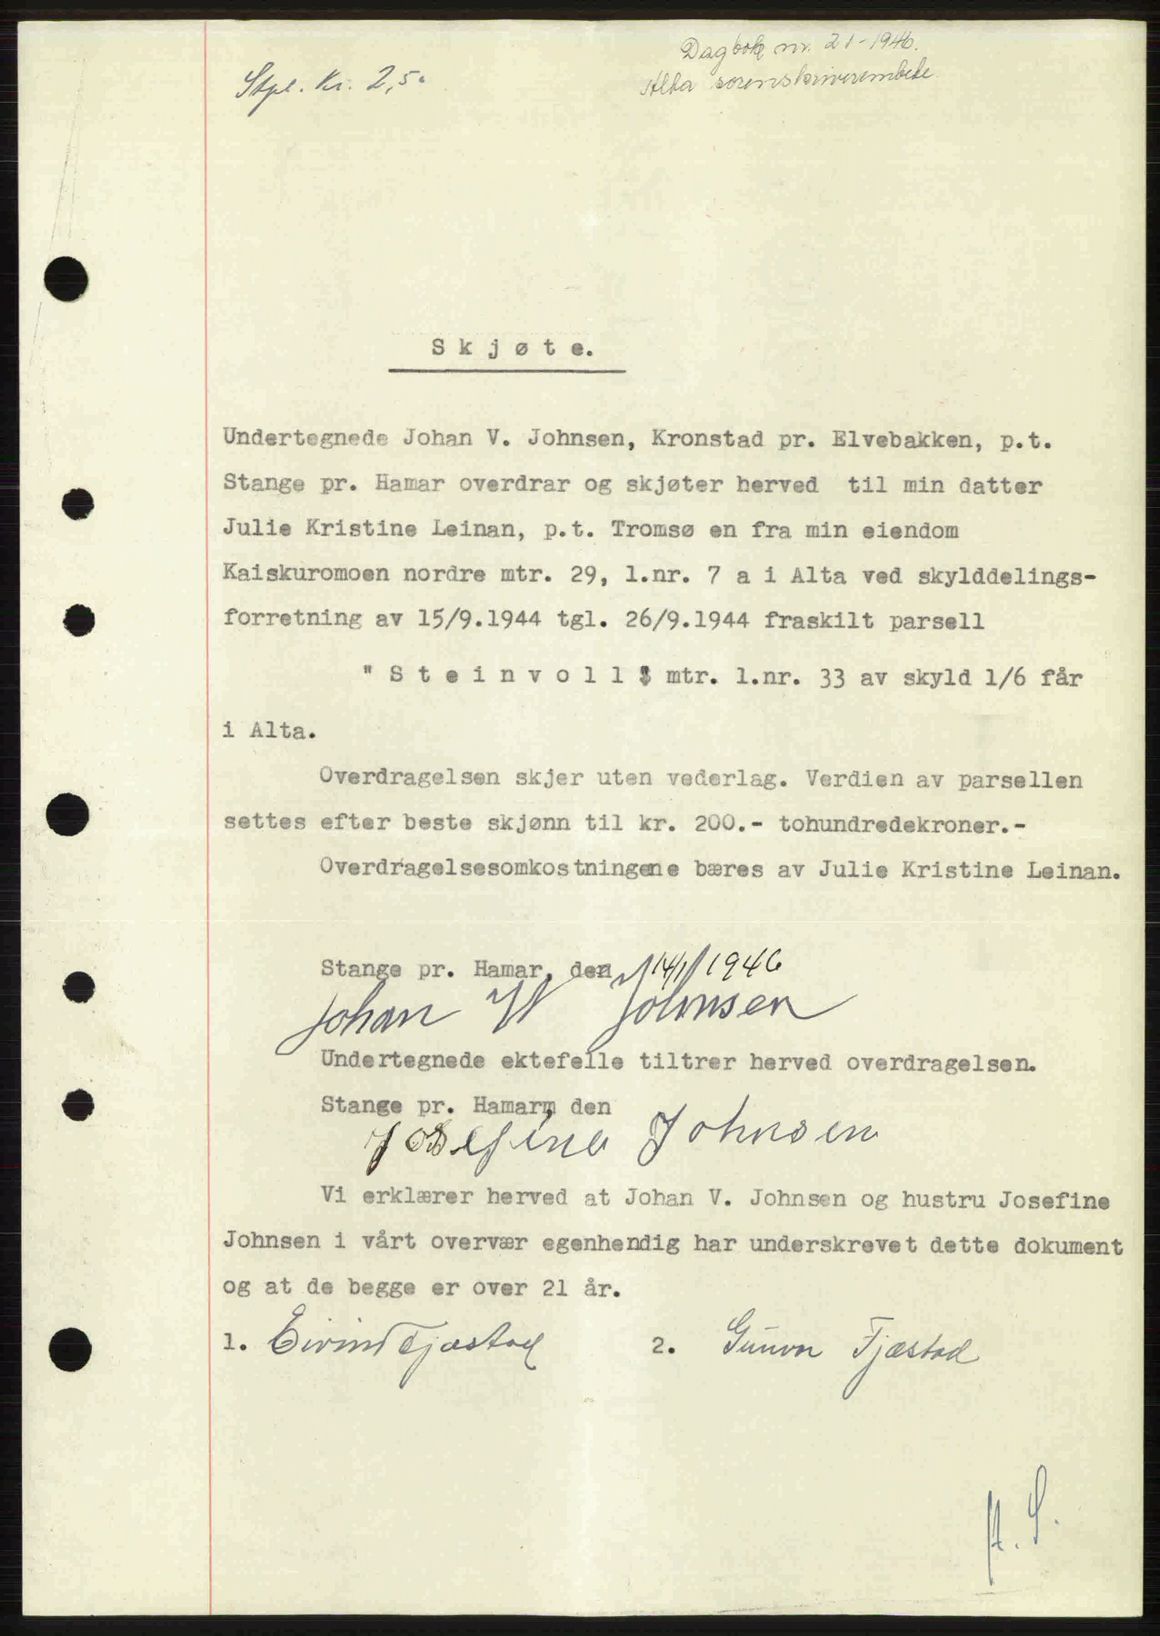 Dagbok nr. 21-1946.
Alta sorenskriverembede
Stpl. Kr. 2,50
Skjøte.
Undertegnede Johan V. Johnsen, Kronstad pr. Elvebakken, p.t.
Stange pr. Hamar overdrar og skjøter herved til min datter
Julie Kristine Leinan, p.t. Tromsø en fra min eiendom
Kaiskuromoen nordre mtr. 29, l.nr. 7 a i Alta ved skylddelings-
forretning av 15/9.1944 tgl. 26/9.1944 fraskilt parsell
"Steinvoll" mtr. l.nr. 33 av skyld 1/6 får
i Alta.
Overdragelsen skjer uten vederlag. Verdien av parsellen
settes efter beste skjønn til kr. 200.- tohundredekroner.-
Overdragelsesomkostningene bæres av Julie Kristine Leinan.
Stange pr. Hamar, den 14/1 1946
Johan W Johnsen
Undertegnede ektefelle tiltrer herved overdragelsen.
Stange pr. Hamarm den
Josefine Johnsen
Vi erklærer herved at Johan V. Johnsen og hustru Josefine
Johnsen i vårt overvær egenhendig har underskrevet dette dokument
og at de begge er over 21 år.
1. Eivind Fjæstad 2. Gunvor Fjæstad
A. S.